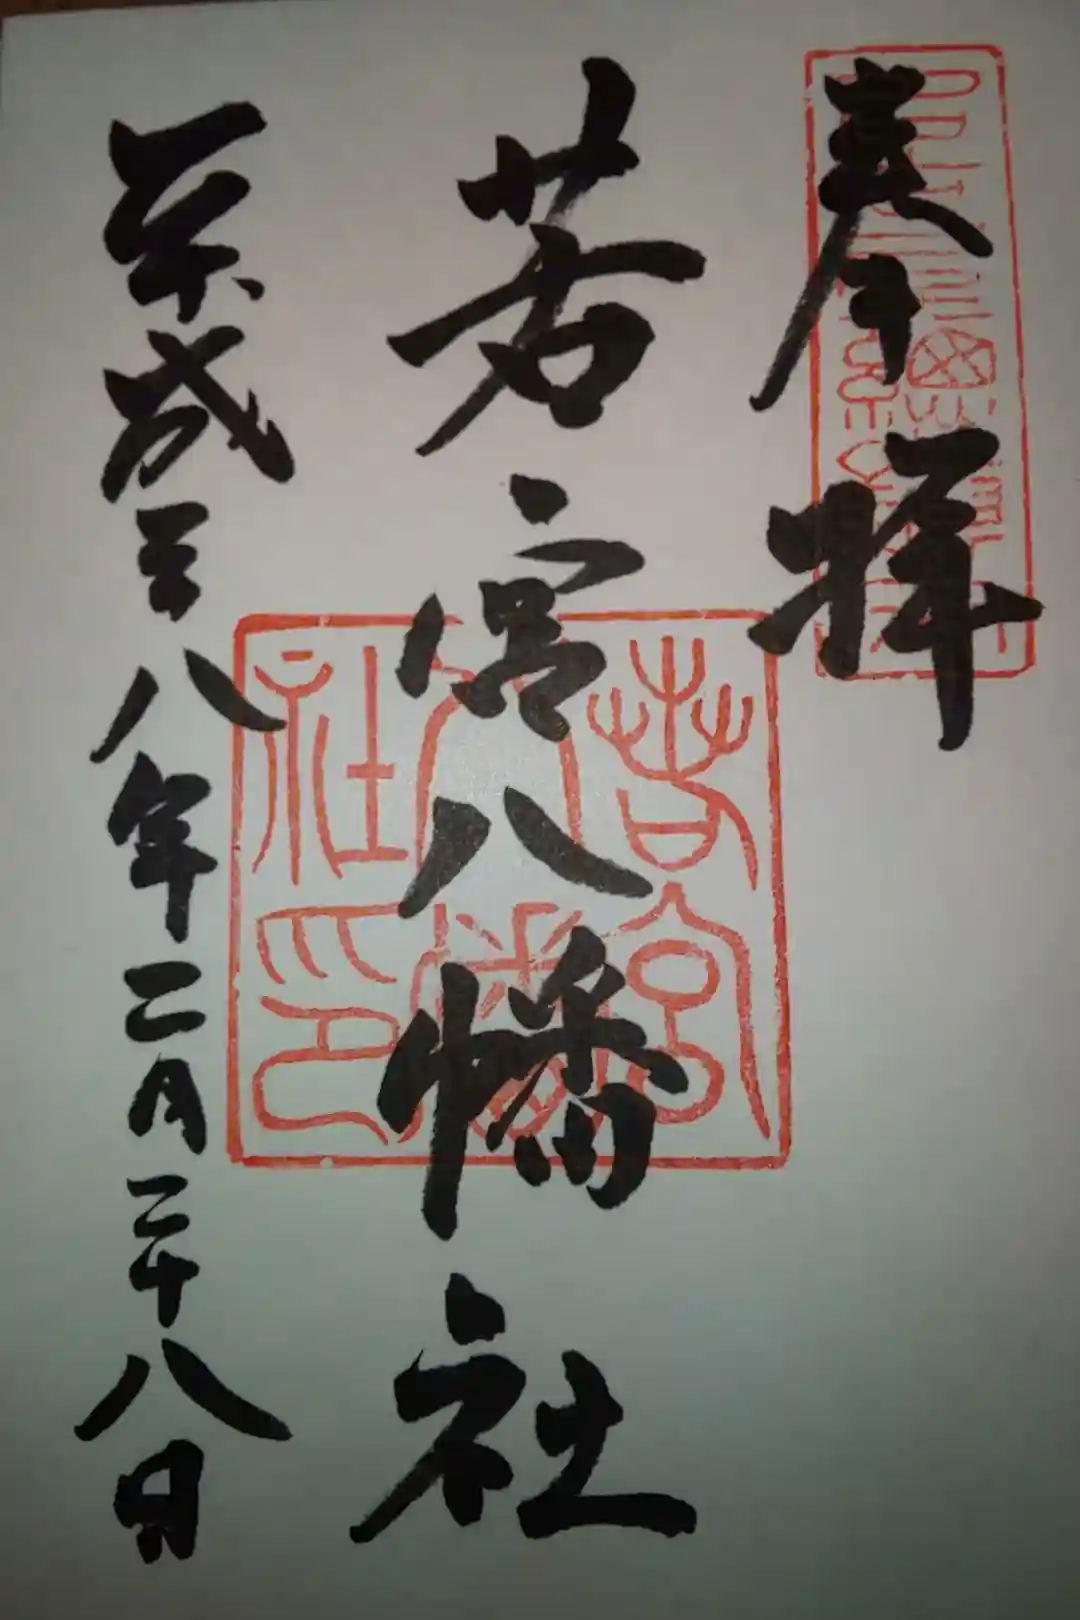 奉拝
若宮八幡社
平成二十八年二月二十八日
若宮
八幡
社印